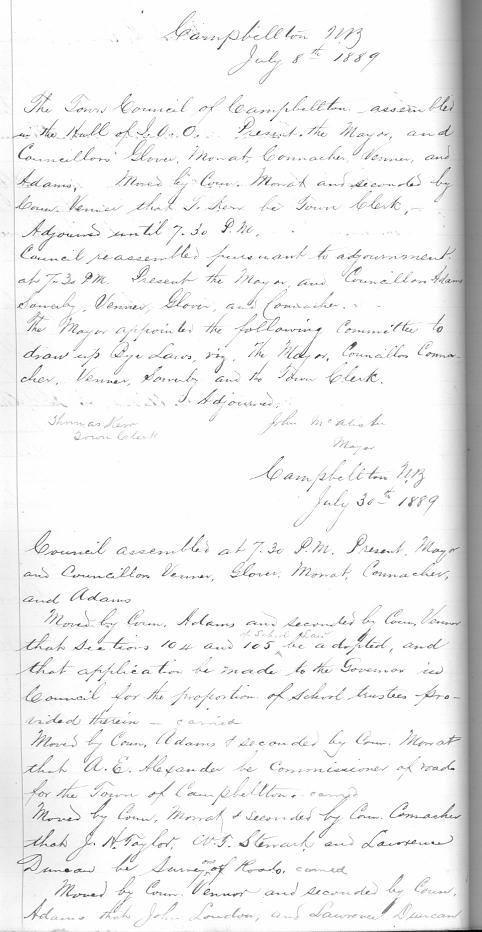 Campbellton NB
July 8th 1889
The Town Council of Campbellton assembled
in the Hall of I.O.O. Present the Mayor, and
Councillors Glover, Mowat, Connacher, Venner, and
Adams, Moved by Coun. Mowat and seconded by
Coun. Venner that T. Kerr be Town Clerk,
Adjourned until 7.30 P.M.
Council reassembled pursuant to adjournment
at 7.30 PM. Present the Mayor, and Councillors Adams
Sowerby, Venner, Glover, and Connacher.
The Mayor appointed the following Committee to
draw up Bye Laws, viz, The Mayor, Councillors Conna-
cher, Venner, Sowerby and the Town Clerk.
Adjourned.
Thomas Kerr John McAlister
Town Clerk Mayor
Campbellton NB
July 30th 1889
Council assembled at 7.30 P.M. Present, Mayor
and Councillors Venner, Glover, Mowat, Connacher,
and Adams
Moved by Coun. Adams and seconded by Coun. Venner
of School Law
that Sections 104 and 105 be adopted, and
that application be made to the Governor in
Council for the proportion of school trustees pro-
vided therein — carried
Moved by Coun. Adams & seconded by Coun. Mowat
that A. E. Alexander be commissioner of roads
for the Town of Campbellton. carried
Moved by Coun. Mowat, & seconded by Coun. Connacher
that J. H. Taylor, W. T. Stewart and Lawrence
Duncan be Surveyors of Roads. carried
Moved by Coun. Venner and seconded by Coun.
Adams that John Loudon, and Lawrence Duncan